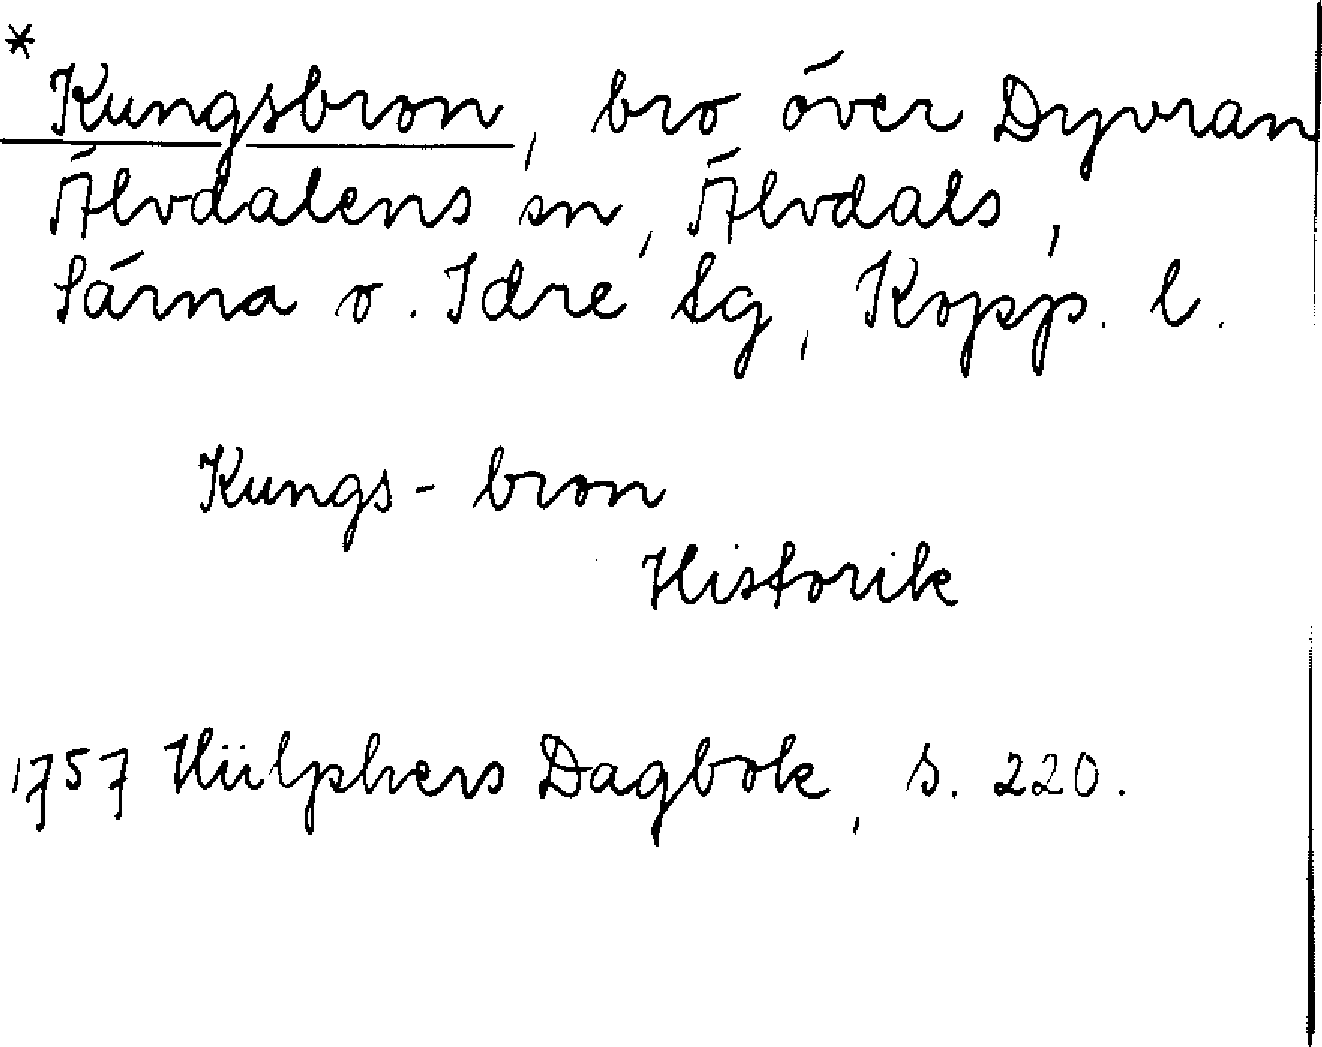 * Kungsbron, bro över Dyvran
Älvdalens sn, Älvdals,
Särna o. Idre tg, Kopp. l.
Kungs - bron
Historik
1757 Hülphers Dagbok, s. 220.